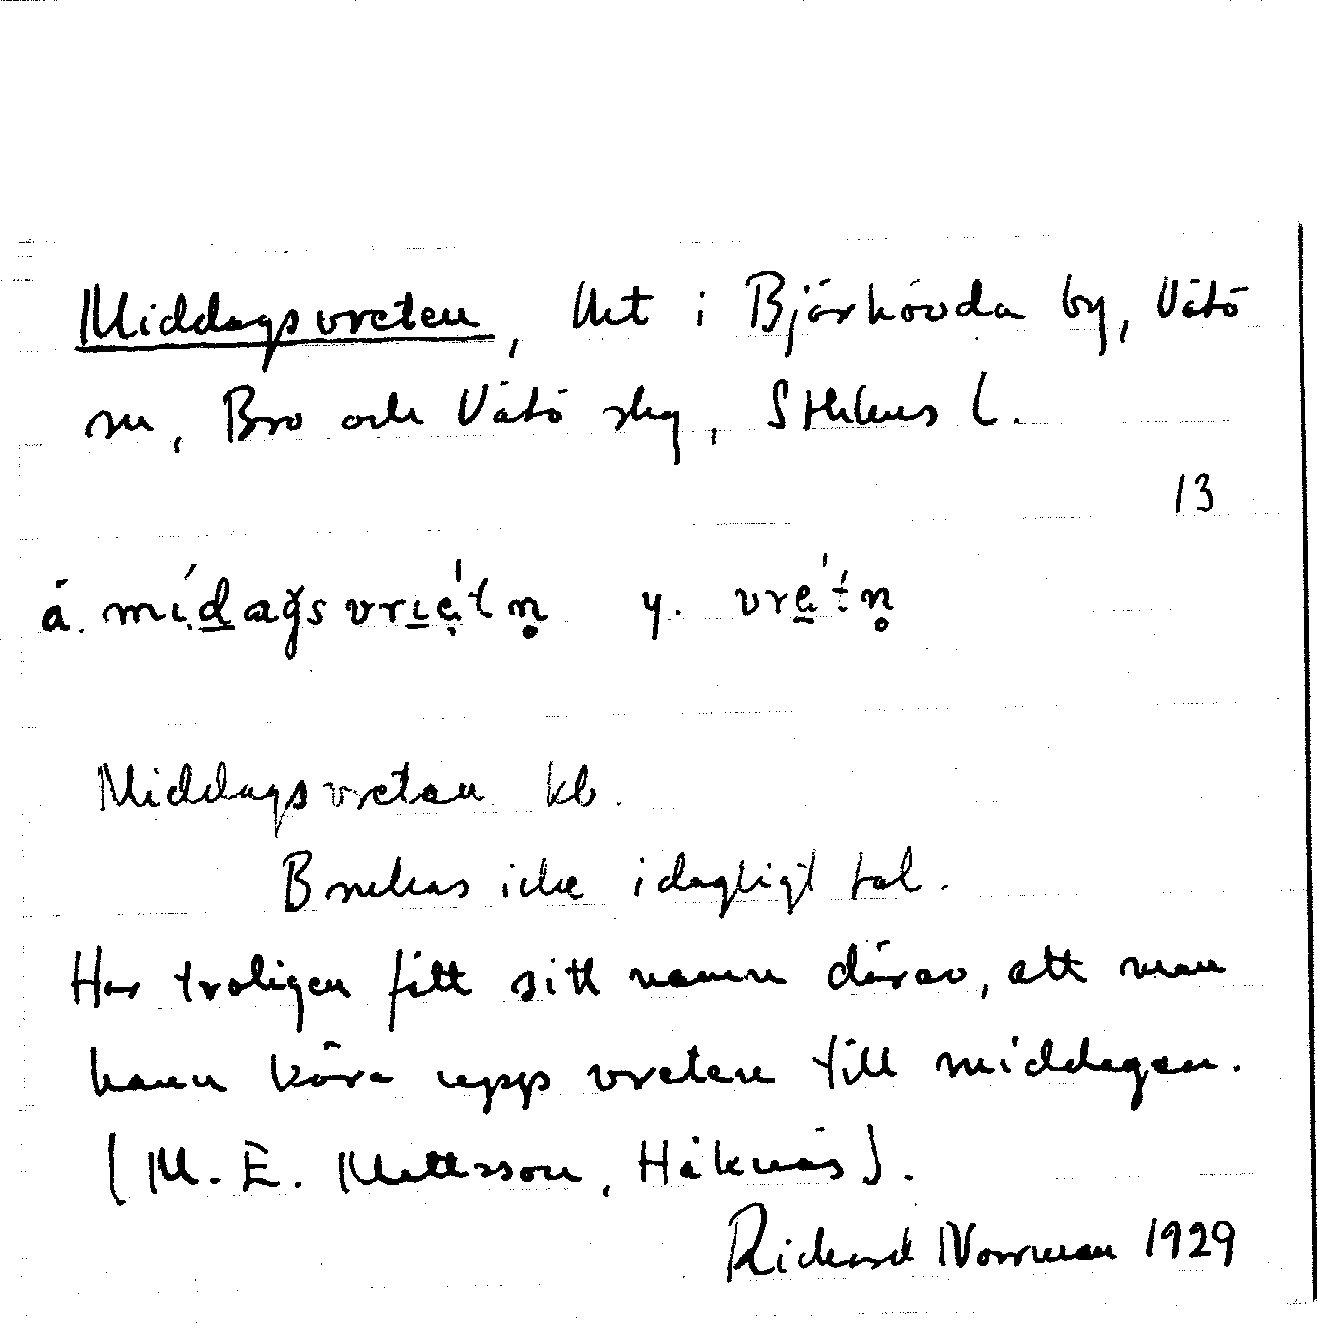 Middagsvreten, Mt i Björhövda by, Vätö
sn, Bro och Vätö skg, Sthlms l.
13
ä. mídağsvrıẹ́tn̥ y. vré́tn̥
Middagsvretan kb.
Brukas icke i dagligt tal.
Har troligen fått sitt namn därav, att man
hann köra upp vreten till middagen.
(M. E. Mattsson, Håknäs).
Richard Norrman 1929